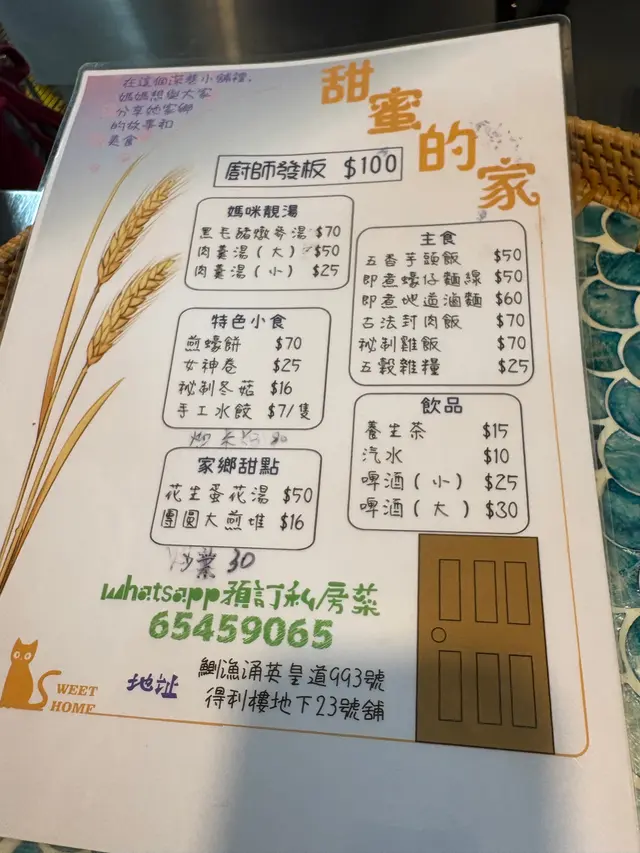 在這個深巷小舖裡,
媽媽想與大家
分享她家鄉
的故事和
美食
甜蜜的家
廚師發板 $100
媽咪靚湯
黑毛豬燉參湯 $70
肉羹湯(大) $50
肉羹湯(小) $25
主食
五香芋頭飯 $50
即煮蠔仔麵線 $50
即煮地道滷麵 $60
古法封肉飯 $70
祕制雞飯 $70
五穀雜糧 $25
特色小食
煎蠔餅 $70
女神卷 $25
祕制冬菇 $16
手工水餃 $7/隻
飲品
養生茶 $15
汽水 $10
啤酒(小) $25
啤酒(大) $30
家鄉甜點
花生蛋花湯 $50
團圓大煎堆 $16
炒菜 30
whatsapp預訂私房菜
65459065
地址
鰂漁涌英皇道993號
得利樓地下23號舖
SWEET
HOME